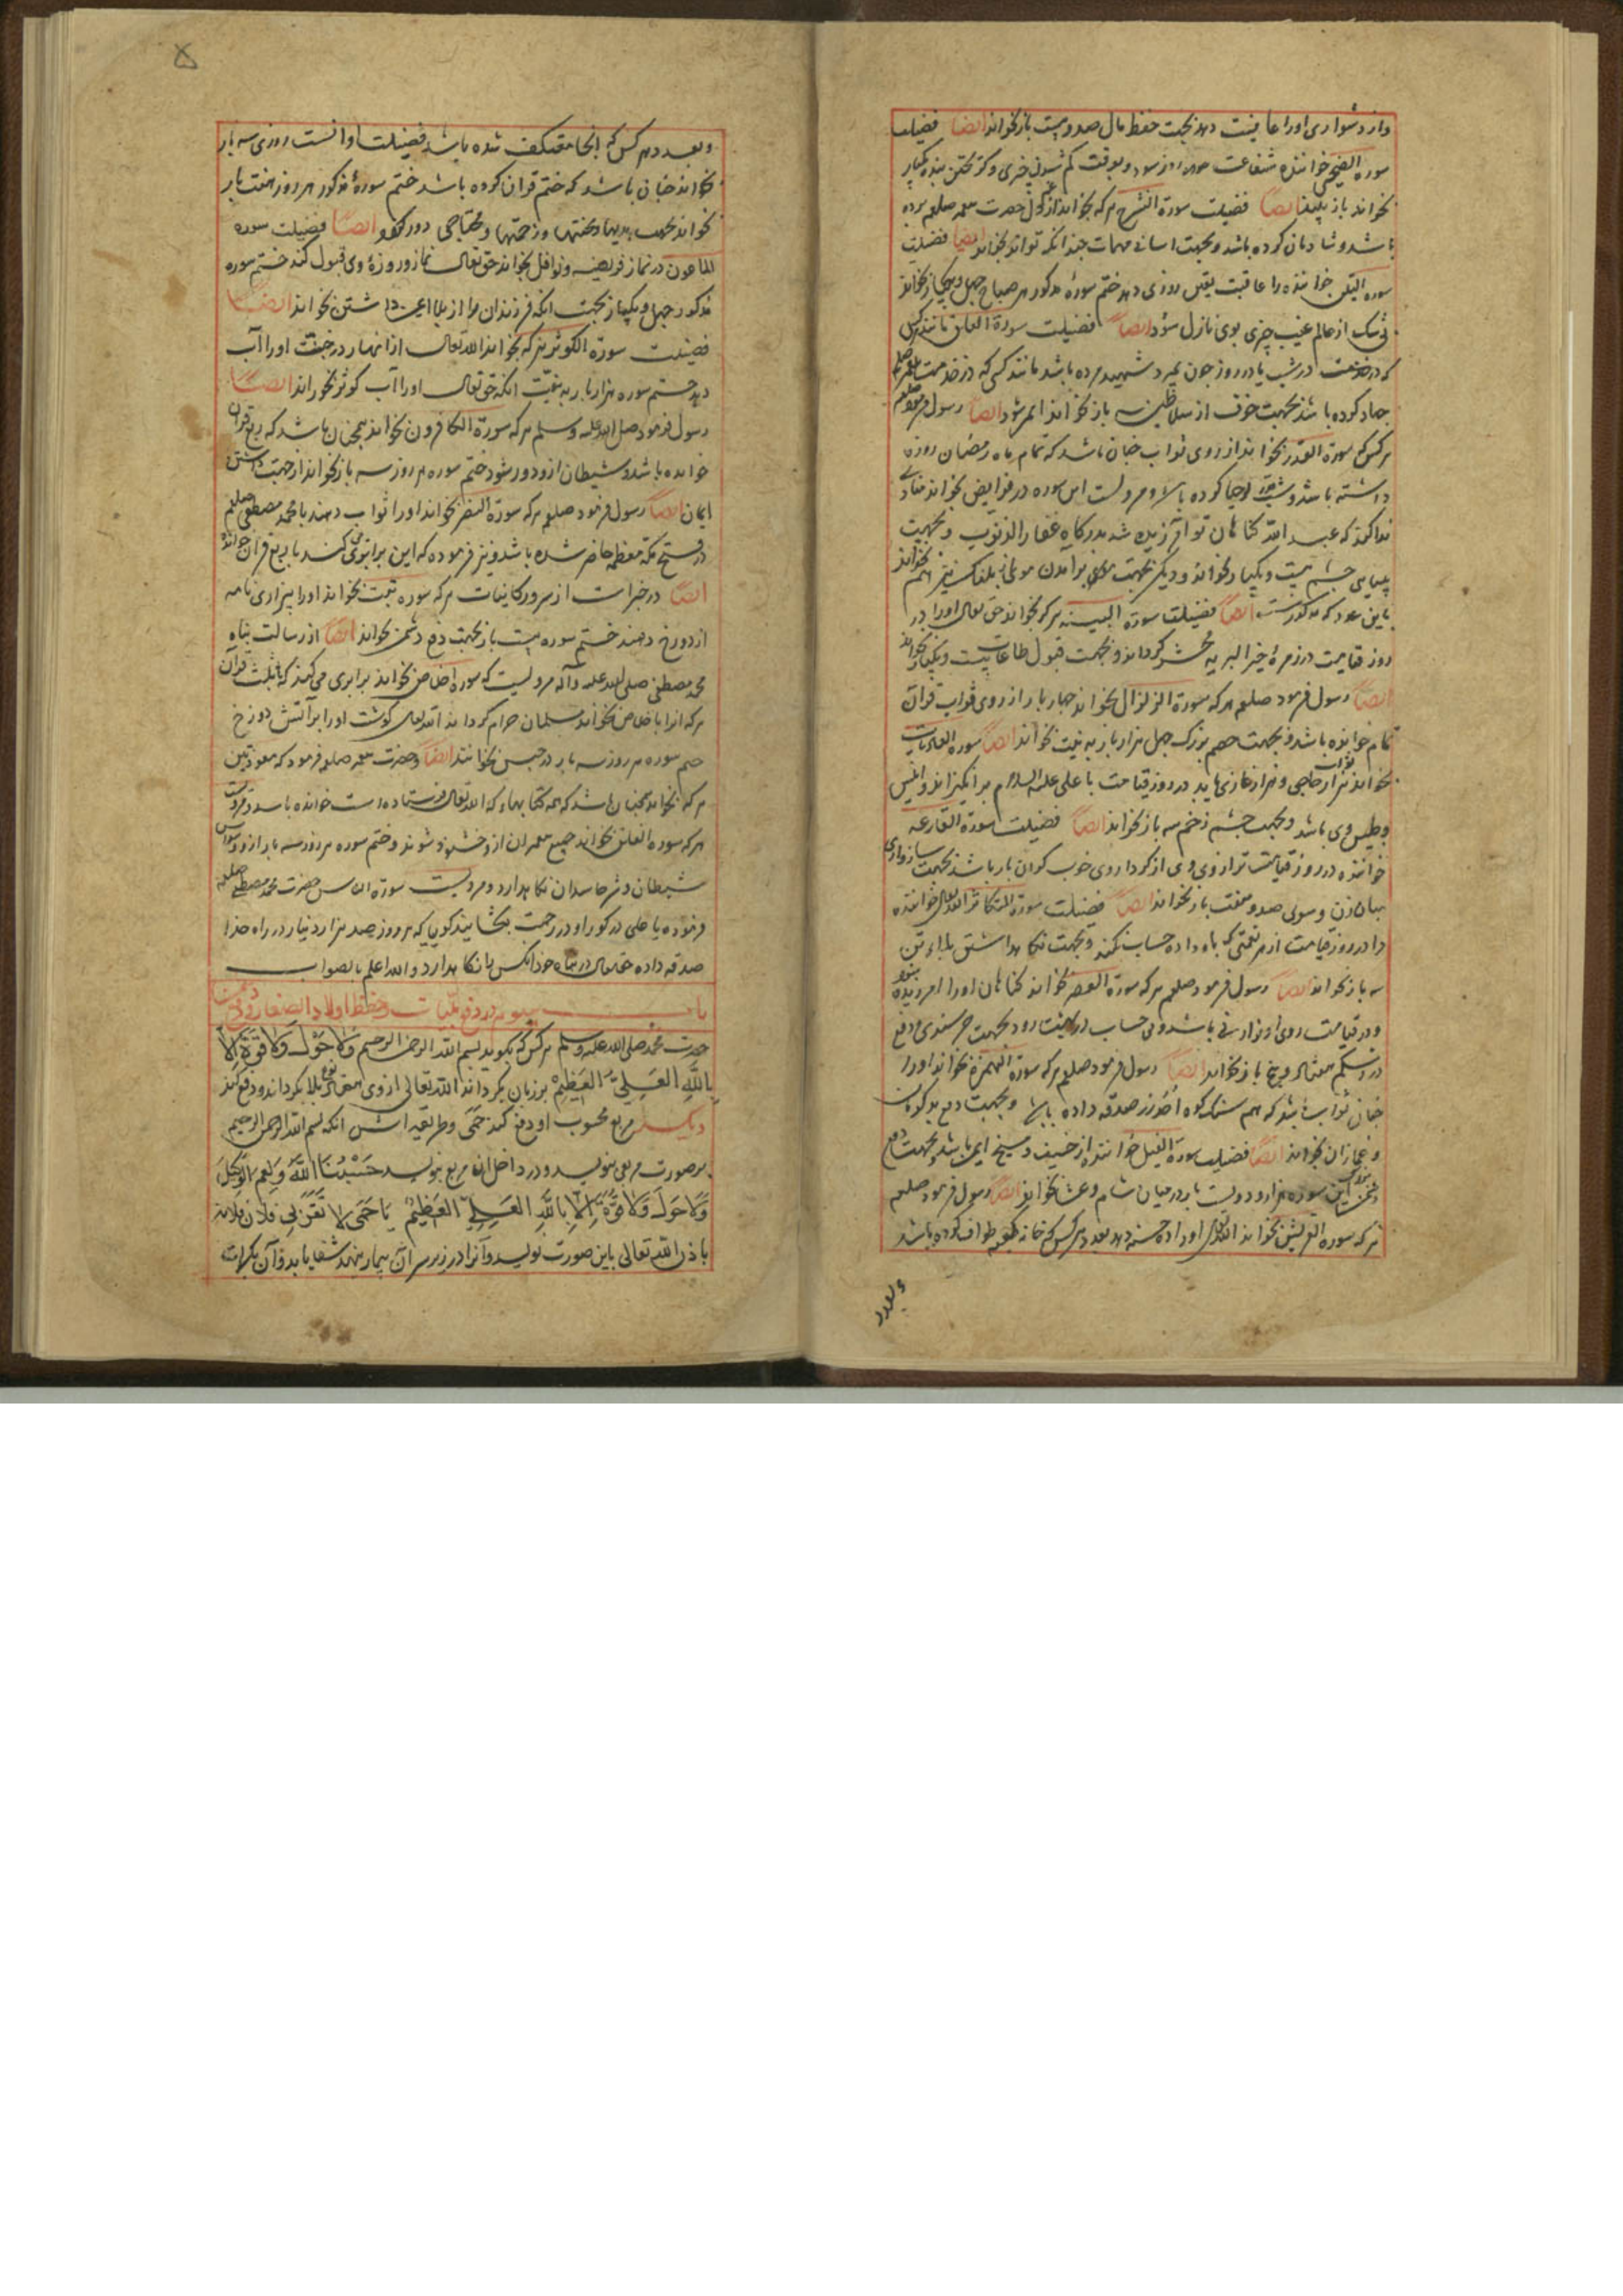 واز دشواری اورا عافیت دهد بجهت حفظ مال صد و بیست بار بخواند ایضا فضیلت
سوره الضحی خواننده شفاعت روز شود و بوقت کم شدن چیزی و گریختن بنده یکبار
بخواند باز یابد ایضا فضیلت سورة انشرح هر که بخواند از دل حضرت صلعم برده
باشد و شادمان کرده باشد و بجهت اسانی مهمات چندانکه تواند بخواند ایضا فضیلت
سوره التین خواننده را عاقبت یقین روزی دهد ختم سورۀ مذکور هر صباح چهل و یکبار بخواند
بی شک از عالم غیب چیزی بوی نازل شود ایضا فضیلت سورة العلق مانند کسی
که در شب یا در روز چون بمیرد شهید مرده باشد مانند کسی که در خدمت
جهاد کرده باشد بجهت خوف از سلاطین سه بار بخواند ایمن شود ایضا رسول فرمود صلعم
هر کس که سورة القدر بخواند از روی ثواب چنان باشد که تمام ماه رمضان روزه
داشته باشد و شب قدر احیا کرده باشد و مرویست این سوره در فرایض بخواند منادی
ندا کند که عبد الله گناهان تو آمرزیده شد بدرگاه غفار الذنوب و بجهت
چشم بیست و یکبار بخواند و دیگر بجهت برآمدن
باین عدد که مذکورست ایضا فضیلت سورة البینه هر که بخواند حق تعالی اورا در
روز قیامت در زمرۀ خیر البریه محشر گرداند و بجهت قبول طاعات بیست و یکبار بخواند
ایضا رسول فرمود صلعم هر که سورة الزلزال بخواند چهار بار از روی ثواب قران
تمام خوانده باشد و بجهت خصم بزرگ چهل هزار بار به نیت بخواند ایضا سوره العادیات
بخواند ثواب هزار حاجی و هزار غازی یابد در روز قیامت با علی علیه السلام برانگیزاند و انیس
و جلیس وی باشد و بجهت چشم زخم سه بار بخواند ایضا فضیلت سورة القارعه
خواننده در روز قیامت ترازوی وی از کردار وی خوب گران بار باشد بجهت سازواری
میان زن و شوی صد و هفت بار بخواند ایضا فضیلت سورة التکاثر الله تعالی خواننده
را در روز قیامت از هر نعمتی که باو داده حساب نکند و بجهت نگاهداشتن بلاء تن
سه بار بخواند ایضا رسول فرمود صلعم هر که سورة العصر بخواند گناهان اورا امرزیده شود
و در قیامت روی او نورانی باشد و بی حساب در بهشت رود بجهت خرسندی و دفع
درد شکم هفتاد و پنج بار بخواند ایضا رسول فرمود صلعم هر که سورة الهمزة بخواند اورا
چنان ثواب باشد که هم سنگ کوه احد زر صدقه داده باشد و بجهت دفع بدگویان
و غمازان بخواند ایضا فضیلت سورة الفیل خواننده از خسف و مسخ ایمن باشد و بجهت دفع
دشمن این سوره هزار و دویست بار در میان شام و عشا بخواند ایضا رسول فرمود صلعم
هر که سوره القریش بخواند الله تعالی اورا ده حسنه دهد بعدد هر کس که خانه کعبه طواف کرده باشد
وبعدد
۵
وبعدد هر کس که انجا معتکف شده باشد فضیلت او انست روزی سه بار
بخواند چنان باشد که ختم قران کرده باشد ختم سورۀ مذکور هر روز هفت بار
بخواند بجهت بدیها و محنتها و زحمتها و محتاجی دور کند ایضا فضیلت سوره
الماعون در نماز فریضه و نوافل بخواند حق تعالی نماز و روزۀ وی قبول کند ختم سوره
مذکور چهل و یکبار بجهت انکه فرزندان را از بلا ایمن داشتن بخواند ایضا
فضیلت سورة الکوثر هر که بخواند الله تعالی از انهار در جنت اورا آب
دهد ختم سوره هزار بار به نیت انکه حق تعالی اورا آب کوثر بخوراند ایضا
رسول فرمود صلی الله علیه وسلم هر که سورة الکافرون بخواند همچنان باشد که ربع قران
خوانده باشد و شیطان از و دور شود ختم سوره هر روز سه بار بخواند از جهت داشتن
ایمان ایضا رسول فرمود صلعم هر که سورة النصر بخواند اورا ثواب دهند با محمد مصطفی صلعم
در فتح مکه معظمه حاضر شده باشد و نیز فرموده که این برابری کند با ربع قران خواند
ایضا در خبر است از سرور کاینات هر که سوره تبت بخواند اورا بیزاری نامه
از دوزخ دهند ختم سوره بیست بار بجهت دفع دشمن بخواند ایضا از رسالت پناه
محمد مصطفی صلی الله علیه وآله مرویست که سوره اخلاص بخواند برابری می کند که با ثلث قرآن
هر که انرا باخلاص بخواند مسلمان حرام گرداند الله تعالی گوشت اورا بر آتش دوزخ
ختم سوره هر روز سه بار در حبس بخوانند ایضا حضرت صلعم فرمود که معوذتین
هر که بخواند همچنان باشد که همه کتابهاء که الله تعالی فرستاده است خوانده باشد و
هر که سوره الفلق بخواند جمیع پیغمبران ازو خشنود شوند و ختم سوره هر روز سه بار از وسواس
شیطان و شر حاسدان نگاهدارد و مرویست سورة الناس حضرت محمد مصطفی صلعم
فرموده یا علی در گور او در رحمت بگشایند گویا که هر روز صد هزار دینار در راه خدا
صدقه داده حق تعالی در پناه خود انکس را نگاهدارد والله اعلم بالصواب
باب سیوم در دفع بلیات و حفظ اولاد الصغار و
حضرت محمد صلی الله علیه وسلم هر کس که بگوید بسم الله الرحمن الرحیم وَلَا حَوْلَ وَلَا قُوَّةَ اِلَّا
بِاللهِ العَلِیِّ العَظِیْمِ بر زبان بگرداند الله تعالی از وی هفتاد نوع بلا بگرداند و دفع کند
دیگر مربع محسوب او دفع کند حُمّی وطریقه اش انکه بسم الله الرحمن الرحیم
بر صورت مربعی بنویسد و در داخل ان مربع بنویسد حَسْبُنَا اللهُ وَنِعْمَ الوَکِیْلُ
وَلَا حَوْلَ وَلَا قُوَّةَ اِلَّا بِاللهِ العَلِیِّ العَظِیْمِ یَا حُمَّی لَا تَقْرَبِی فلان فلانه
باذن الله تعالی باین صورت نویسد و آنرا در زیر سر آن بیمار نهند شفا یابد و آن بکرات